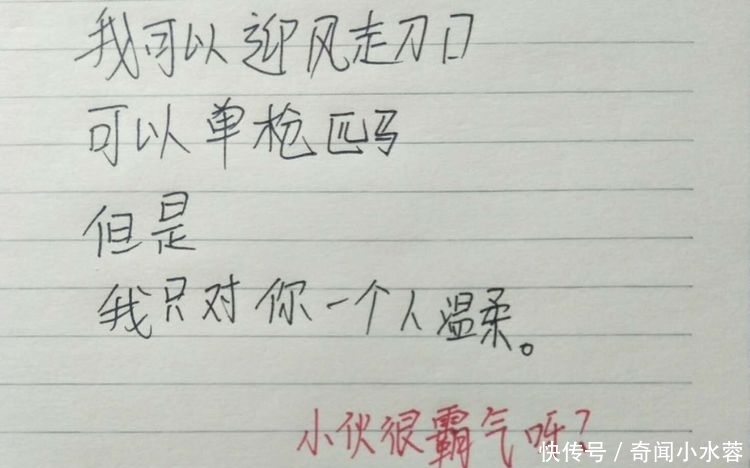 我可以迎风走刀口
可以单枪匹马
但是
我只对你一个人温柔。
小伙很霸气呀？
快传号 / 奇闻小水蓉